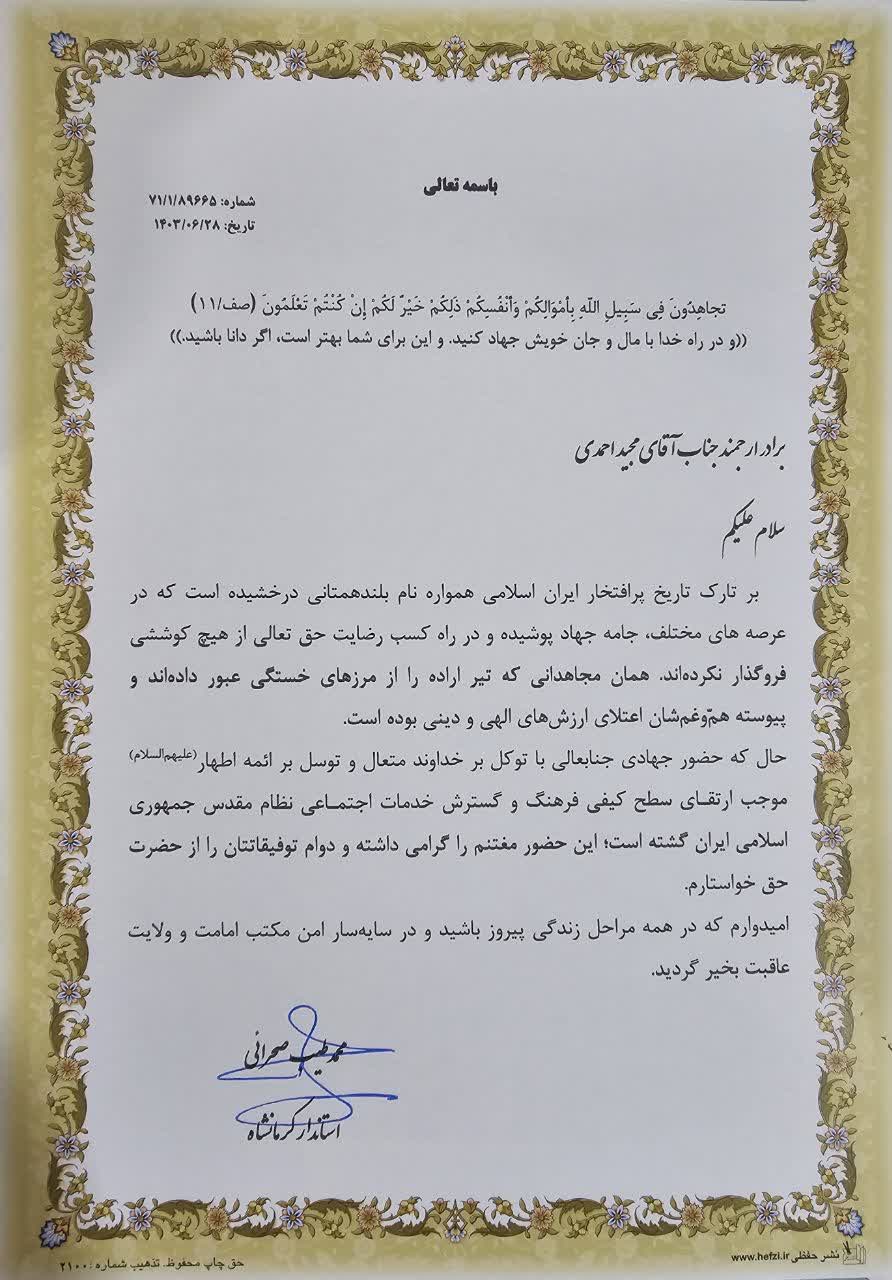 باسمه تعالی
شماره: ۷۱/۱/۸۹۶۶۵
تاریخ: ۱۴۰۳/۰۶/۲۸
تجاهِدُونَ فِی سَبِیلِ اللّهِ بِأَمْوَالِکُمْ وَأَنْفُسِکُمْ ذَلِکُمْ خَیْرٌ لَکُمْ إِنْ کُنْتُمْ تَعْلَمُونَ (صف/۱۱)
((و در راه خدا با مال و جان خویش جهاد کنید. و این برای شما بهتر است، اگر دانا باشید.))
برادر ارجمند جناب آقای مجید احمدی
سلام علیکم
بر تارک تاریخ پرافتخار ایران اسلامی همواره نام بلندهمتانی درخشیده است که در
عرصه های مختلف، جامه جهاد پوشیده و در راه کسب رضایت حق تعالی از هیچ کوششی
فروگذار نکرده‌اند. همان مجاهدانی که تیر اراده را از مرزهای خستگی عبور داده‌اند و
پیوسته هم‌ّوغم‌شان اعتلای ارزش‌های الهی و دینی بوده است.
حال که حضور جهادی جنابعالی با توکل بر خداوند متعال و توسل بر ائمه اطهار(علیهم‌السلام)
موجب ارتقـای سطح کیفی فرهنگ و گسترش خدمات اجتمـاعی نظام مقدس جمهوری
اسلامی ایران گشته است؛ این حضور مغتنم را گرامی داشته و دوام توفیقاتتان را از حضرت
حق خواستارم.
امیدوارم که در همه مراحل زندگی پیروز باشید و در سایه‌سار امن مکتب امامت و ولایت
عاقبت بخیر گردید.
محمد طیب صحرائی
استاندار کرمانشاه
نشر حفظی www.hefzi.ir
حق چاپ محفوظ. تذهیب شماره: ۲۱۰۰